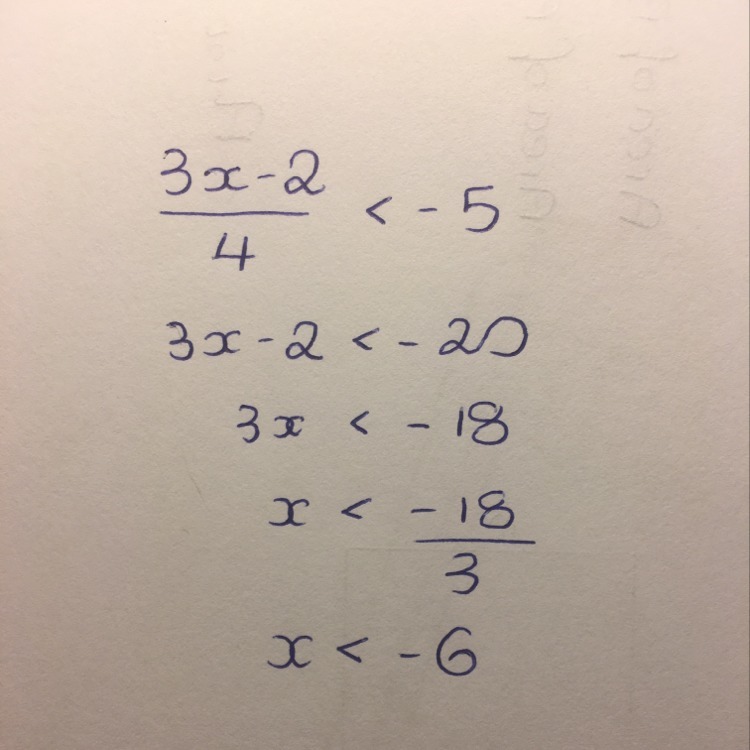 3x-2
4 < - 5
3x - 2 < - 20
3x < - 18
x < - 18
3
x < - 6